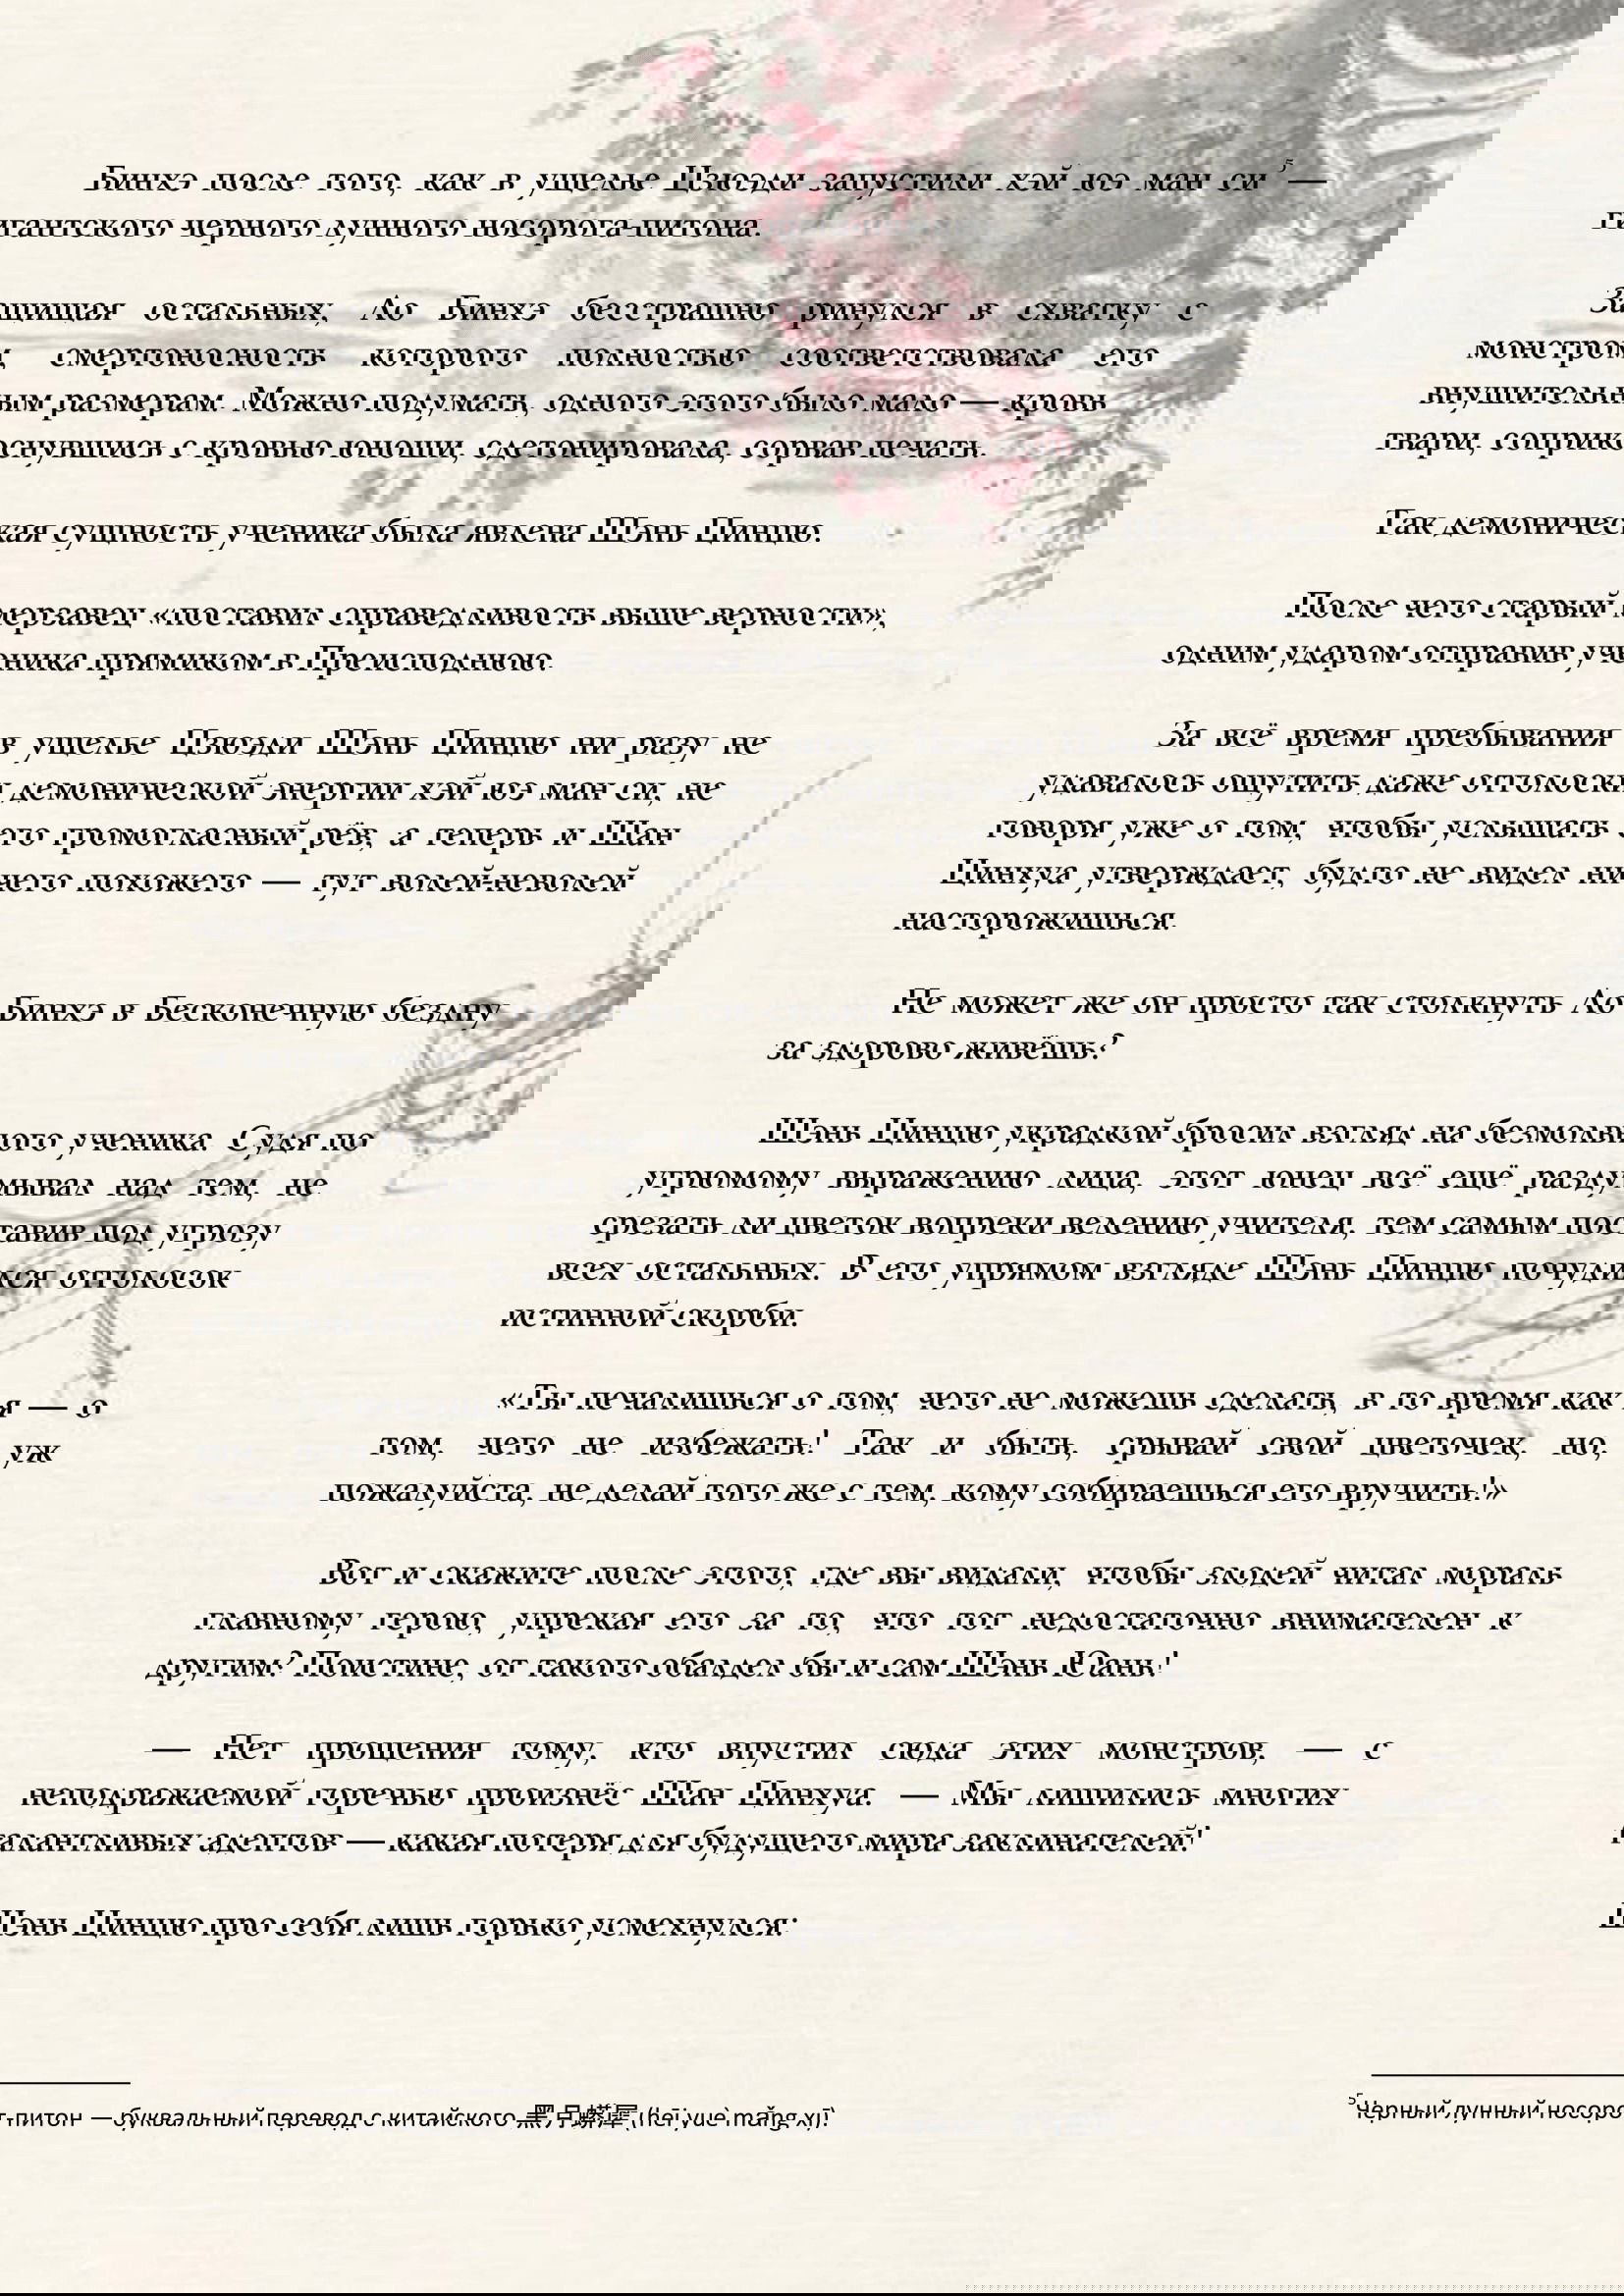 Бинхэ после того, как в ущелье Цзюэди запустили хэй юэ ман си ⁵ —
гигантского черного лунного носорога-питона.
Защищая остальных, Ло Бинхэ бесстрашно ринулся в схватку с
монстром, смертоносность которого полностью соответствовала его
внушительным размерам. Можно подумать, одного этого было мало — кровь
твари, соприкоснувшись с кровью юноши, сдетонировала, сорвав печать.
Так демоническая сущность ученика была явлена Шэнь Цинцю.
После чего старый мерзавец «поставил справедливость выше верности»,
одним ударом отправив ученика прямиком в Преисподнюю.
За всё время пребывания в ущелье Цзюэди Шэнь Цинцю ни разу не
удавалось ощутить даже отголоски демонической энергии хэй юэ ман си, не
говоря уже о том, чтобы услышать его громогласный рёв, а теперь и Шан
Цинхуа утверждает, будто не видел ничего похожего — тут волей-неволей
насторожишься.
Не может же он просто так столкнуть Ло Бинхэ в Бесконечную бездну
за здорово живёшь?
Шэнь Цинцю украдкой бросил взгляд на безмолвного ученика. Судя по
угрюмому выражению лица, этот юнец всё ещё раздумывал над тем, не
срезать ли цветок вопреки велению учителя, тем самым поставив под угрозу
всех остальных. В его упрямом взгляде Шэнь Цинцю почудился отголосок
истинной скорби.
«Ты печалишься о том, чего не можешь сделать, в то время как я — о
том, чего не избежать! Так и быть, срывай свой цветочек, но, уж
пожалуйста, не делай того же с тем, кому собираешься его вручить!»
Вот и скажите после этого, где вы видали, чтобы злодей читал мораль
главному герою, упрекая его за то, что тот недостаточно внимателен к
другим? Поистине, от такого обалдел бы и сам Шэнь Юань!
— Нет прощения тому, кто впустил сюда этих монстров, — с
неподражаемой горечью произнёс Шан Цинхуа. — Мы лишились многих
талантливых адептов — какая потеря для будущего мира заклинателей!
Шэнь Цинцю про себя лишь горько усмехнулся:
⁵ Чёрный лунный носорог-питон — буквальный перевод с китайского 黑月蟒犀 (hēi yuè mǎng xī)